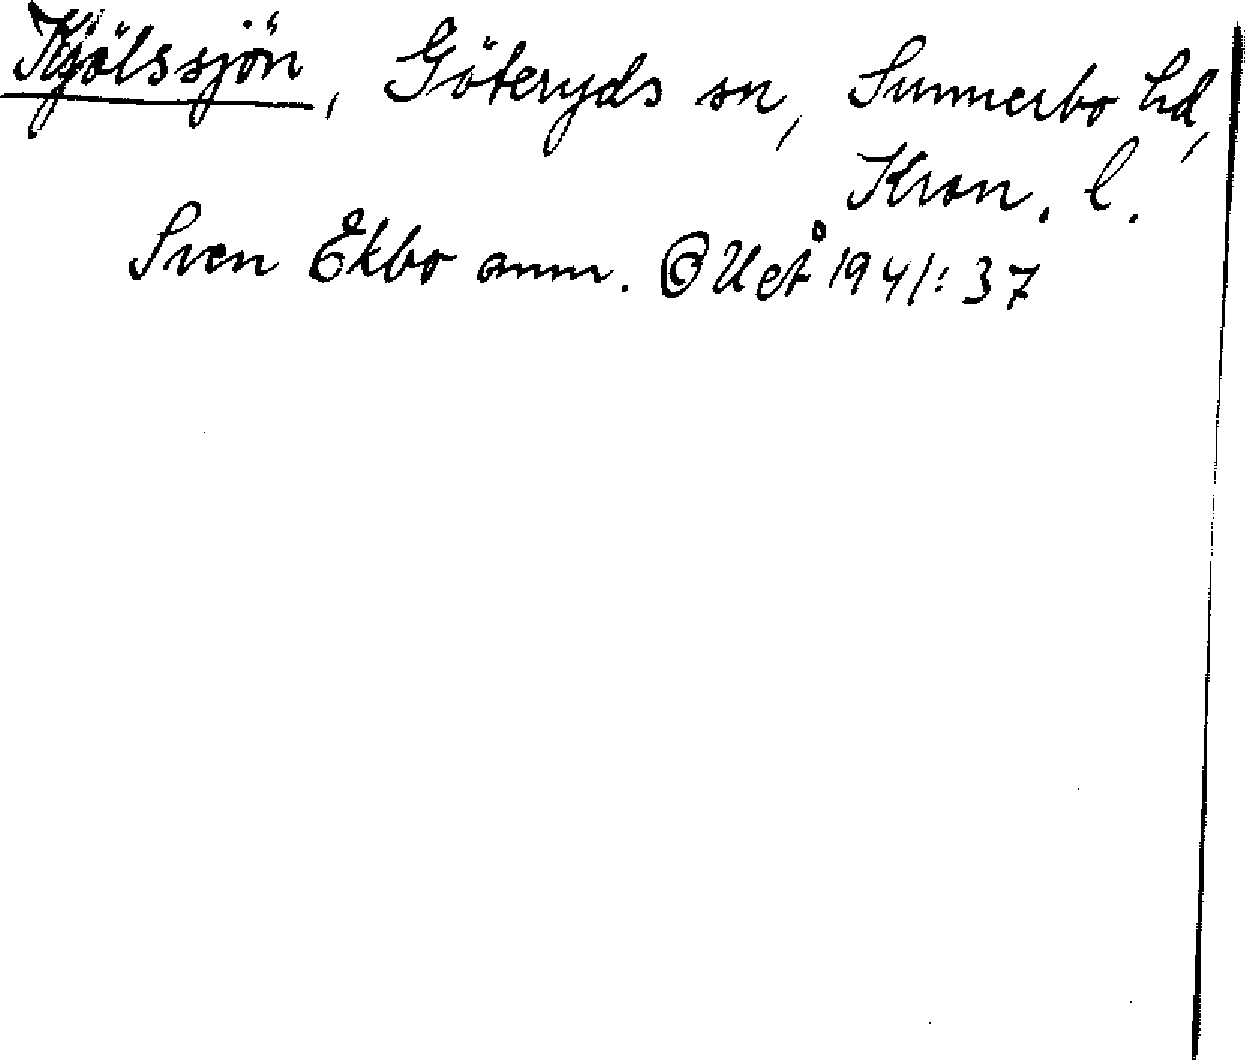 Kjölssjön, Göteryds sn, Sunnerbo hd,
Kron. l.
Sven Ekbo anm. 1941:37